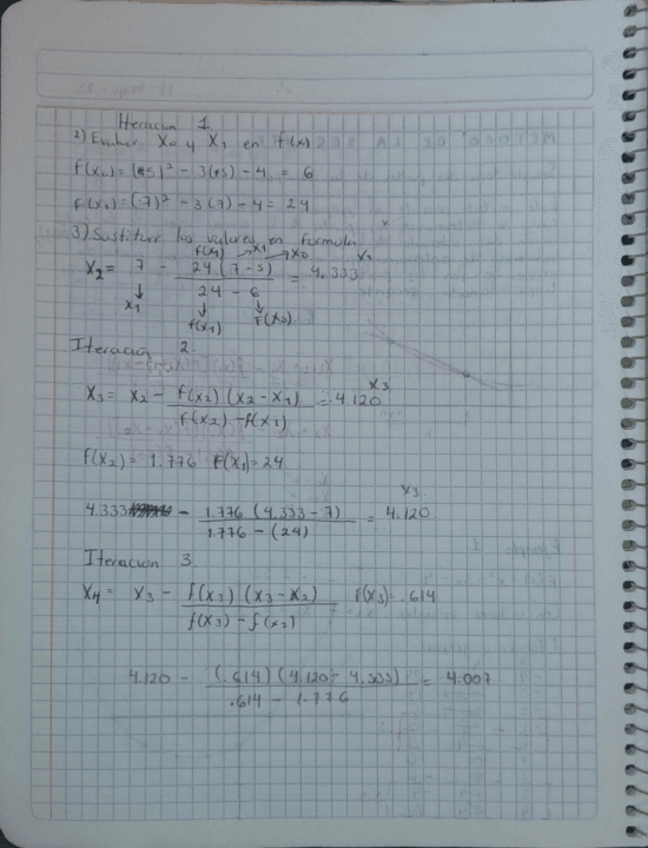 Iteracion 1
2) Evaluar X0 y X1 en f(x)
f(x0) = (5)² - 3(5) - 4 = 6
f(x1) = (7)² - 3(7) - 4 = 24
3) Sustituir los valores en formula
f(x1) → x1 → x0
X2 = 7 - 24 (7 - 5) / 24 - 6 = 4.333 x2
↓ x1 ↓ f(x1) ↓ f(x0)
Iteración 2.
X3 = X2 - f(x2) (x2 - x1) / f(x2) - f(x1) = 4.120 x3
f(x2) = 1.776 f(x1) = 24
4.333 - 1.776 (4.333 - 7) / 1.776 - (24) = 4.120 x3
Iteracion 3.
X4 = X3 - f(x3) (x3 - x2) / f(x3) - f(x2) f(x3) = .614
4.120 - (.614) (4.120 - 4.333) / .614 - 1.776 = 4.007